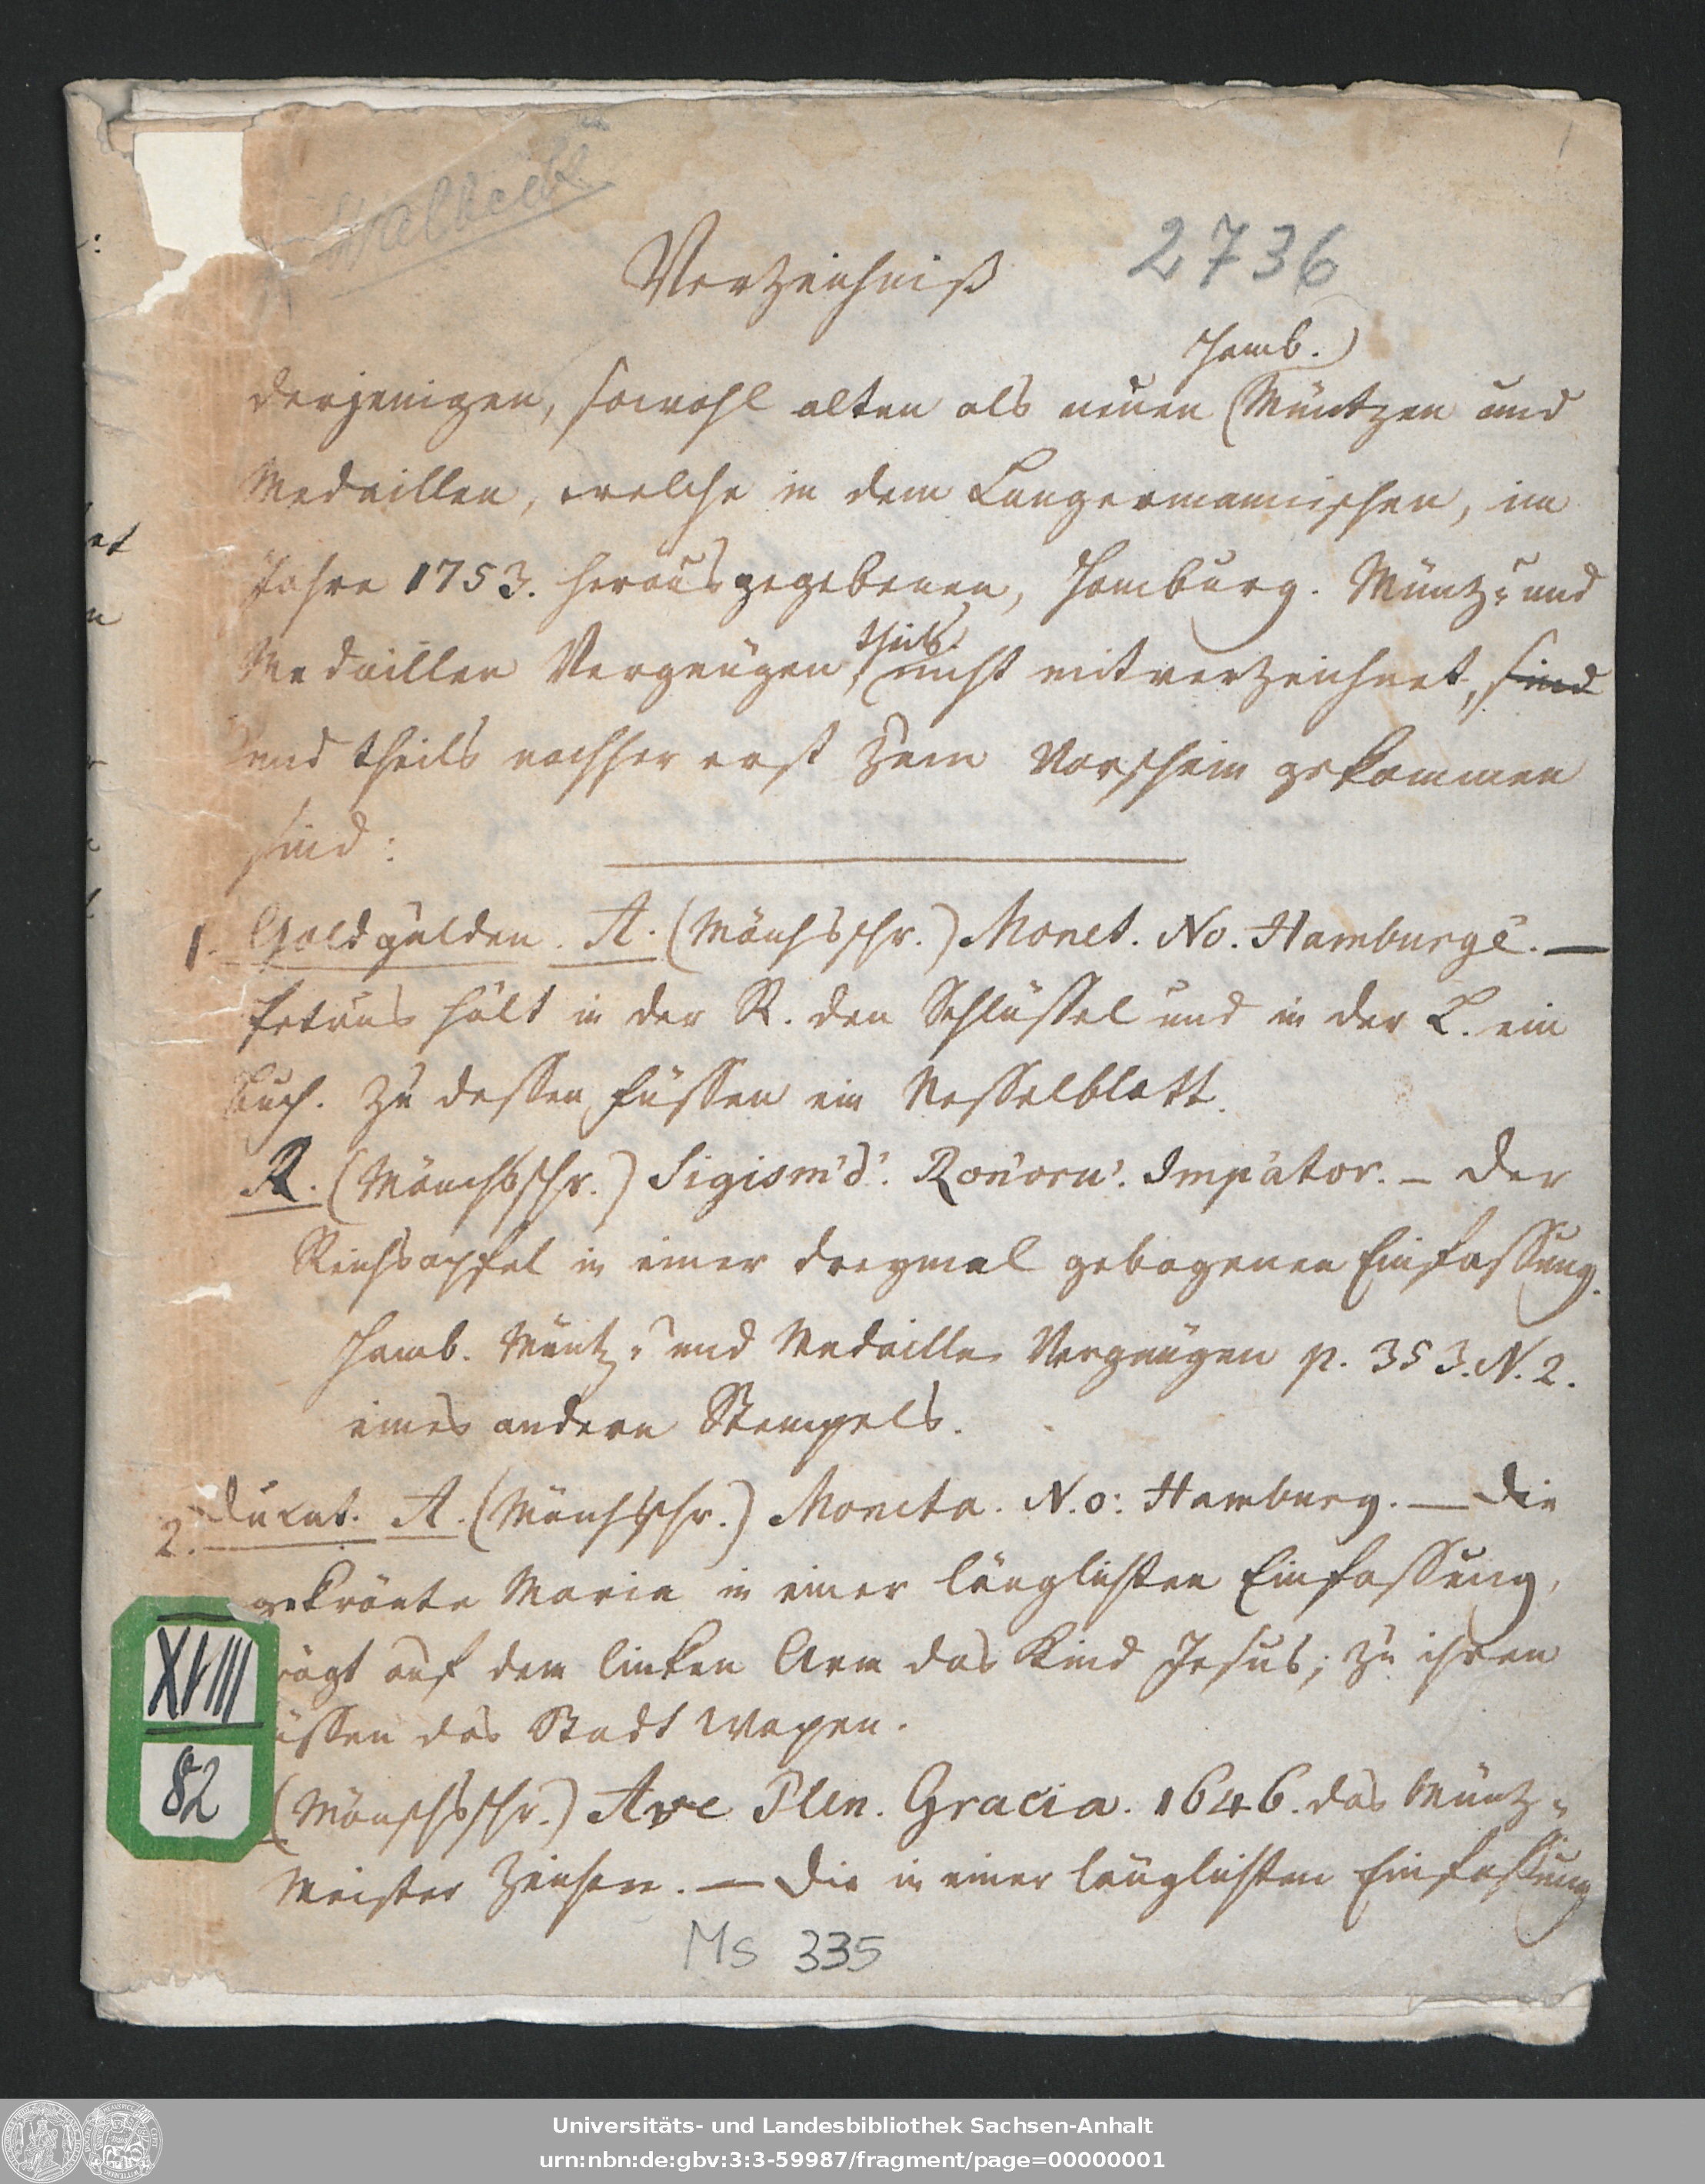 2736
Verzeichniß
Hamb.)
derjenigen, sowohl alten als neuen (Müntzen und
Medaillen, welche in dem Langermannischen, im
Jahre 1753. herausgegebenen, Hamburg. Müntz- und
theils
Medaillen Vergnügen, (nicht mit verzeichnet, sind
und theils nachher erst zum Vorschein gekommen
sind:
1. Goldgulden. A. (Mönchsschr.) Monet. No. Hamburgē. —
Petrus hält in der R. den Schlüssel und in der L. ein
Buch. Zu dessen Füssen ein Nesselblatt.
R. (Mönchsschr.) Sigism'd'. Ron̄orū'. Imp̄ator. – Der
Reichsapfel in einer dreymal gebogenen Einfassung.
Hamb. Müntz- und Medaillen Vergnügen p. 353. N. 2.
eines andern Stempels.
2. Ducat. A. (Mönchsschr.) Moneta. N.o: Hamburg. — Die
gekrönte Maria in einer länglichten Einfassung,
rägt auf dem linken Arm das Kind Jesus; zu ihren
üssen das Stadt Wapen.
(Mönchsschr.) Ave Plen. Gracia. 1646. das Müntz-
Meister Zeichen. — Die in einer länglichten Einfassung
XVIII
82
Ms 335
Universitäts- und Landesbibliothek Sachsen-Anhalt
urn:nbn:de:gbv:3:3-59987/fragment/page=00000001